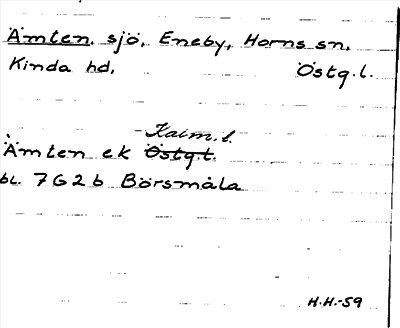 Ämten, sjö, Eneby, Horns sn,
Kinda hd, Östg.l.
Kalm.l.
Ämten ek Östg.l.
bl. 7G2b Börsmåla
H.H.-59